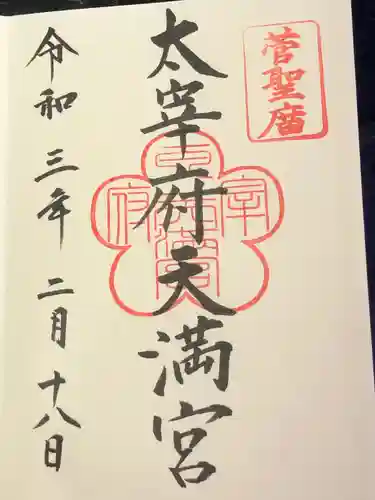 菅聖庿
太宰府天満宮
令和三年二月十八日